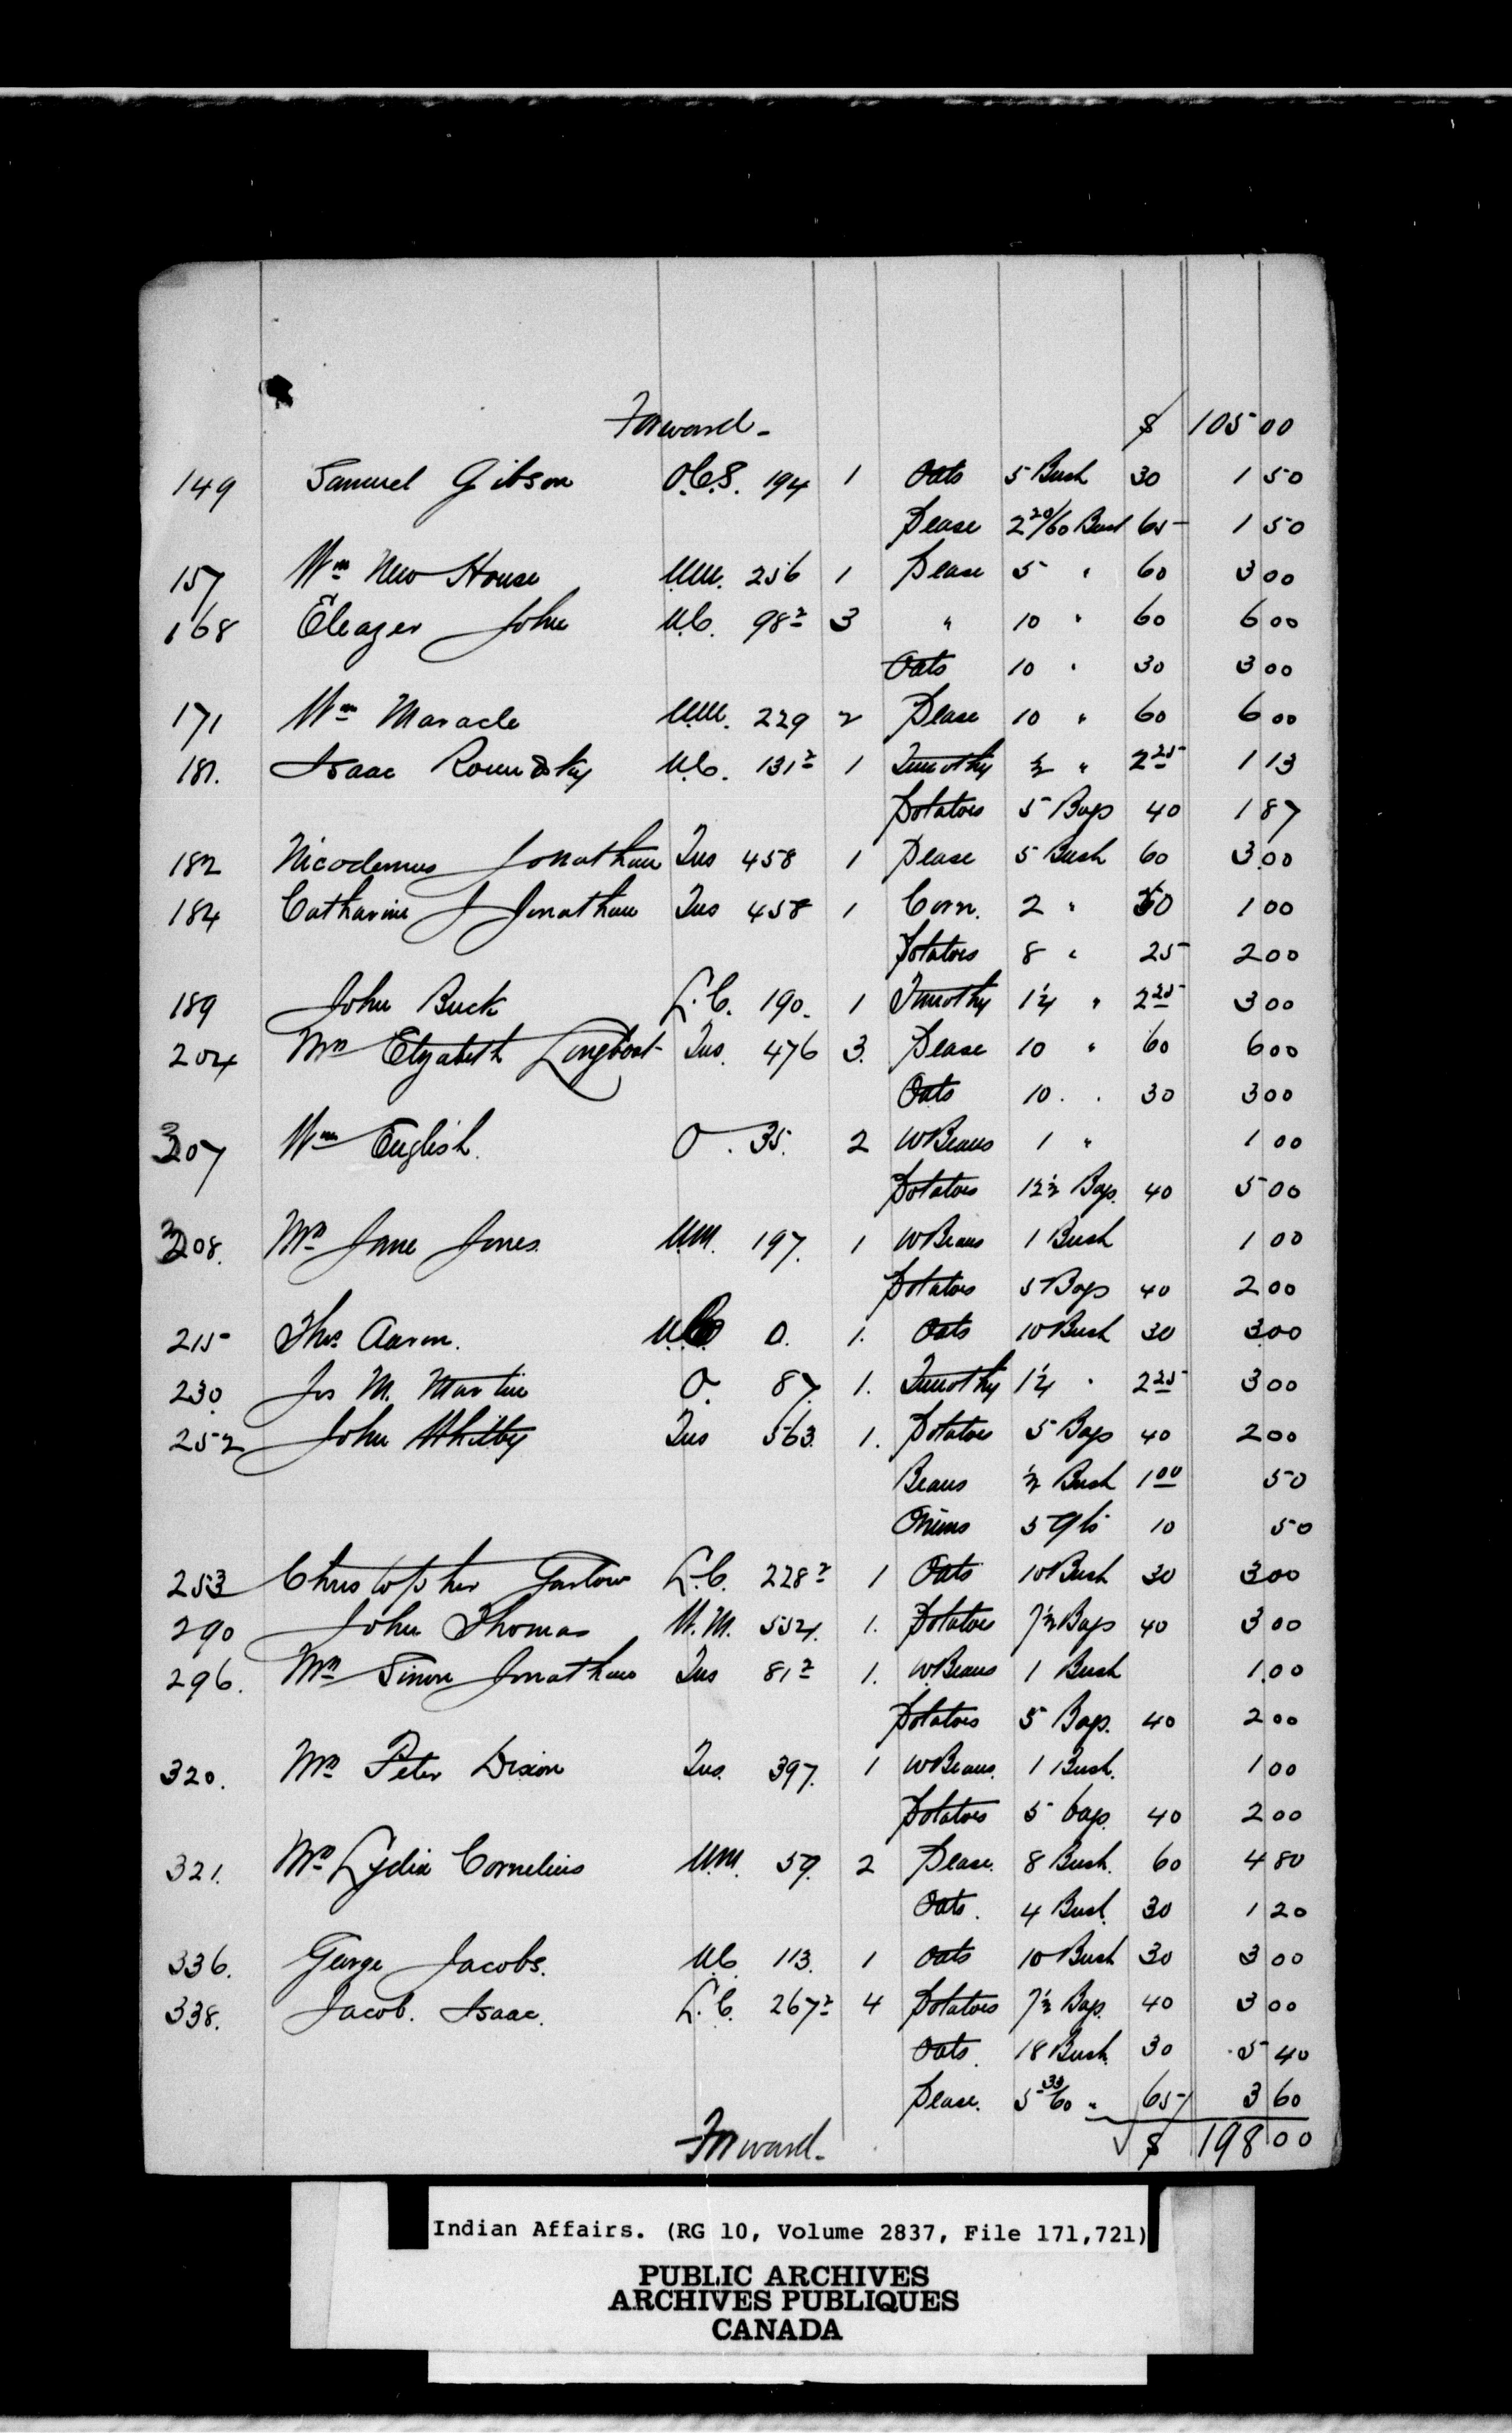 Forward - $ 105 00
149 Samuel Gibson O.C.S. 194 1 Oats 5 Bush 30 1 50
Pease 2 20/60 Bush 65 1 50
157 Wm New House U.M. 256 1 Pease 5 " 60 3 00
168 Eleazer John U.C. 98 2 3 " 10 " 60 6 00
Oats 10 " 30 3 00
171 Wm Maracle U.M. 229 2 Pease 10 " 60 6 00
181. Isaac Roundsky U.C. 131 2 1 Timothy ½ " 2 25 1 13
Potatoes 5 Bags 40 1 87
182 Nicodemus Jonathan Tus 458 1 Pease 5 Bush 60 3 00
184 Catharine J Jonathan Tus 458 1 Corn. 2 " 50 1 00
Potatoes 8 " 25 2 00
189 John Buck L.C. 190. 1 Timothy 1¼ " 2 25 3 00
204 Mrs Elizabeth Longboat Tus. 476 3. Pease 10 " 60 6 00
Oats 10 . . 30 3 00
307 Wm English. O. 35. 2 W Beans 1 " 1 00
Potatoes 12½ Bags. 40 5 00
308. Mrs Jane Jones U.M. 197. 1 W Beans 1 Bush 1 00
Potatoes 5 Bags 40 2 00
215 Thos. Aaron. 0. 1. Oats 10 Bush 30 3.00
230. Jos M. Martin O. 87. 1. Timothy 1¼ " 2 25 3 00
252 John Whitby Tus 563. 1. Potatoes 5 Bags 40 2 00
Beans ½ Bush 1 00 50
Onions 5 Qts 10 50
253 Christopher Garlow L.C. 228 2 1 Oats 10 Bush 30 3 00
290 John Thomas U.M. 554. 1. Potatoes 7½ Bags 40 3 00
296. Mrs Simon Jonathan Tus 81 2 1. W. Beans 1 Bush 1.00
Potatoes 5 Bags. 40 2 00
320. Mrs Peter Dixon Tus. 397. 1 W Beans. 1 Bush. 1 00
Potatoes 5 bags. 40 2 00
321. Mrs Lydia Cornelius U.M. 59. 2 Pease. 8 Bush. 60 4 80
Oats. 4 Bush. 30 1 20
336. George Jacobs. U.C. 113. 1 Oats 10 Bush 30 3 00
338. Jacob. Isaac. L.C. 267 2 4 Potatoes 7½ Bags. 40 3 00
Oats. 18 Bush. 30 5 40
Pease. 5 33/60 " 65 3 60
Forward - √ $ 198 00
Indian Affairs. (RG 10, Volume 2837, File 171,721)
PUBLIC ARCHIVES
ARCHIVES PUBLIQUES
CANADA